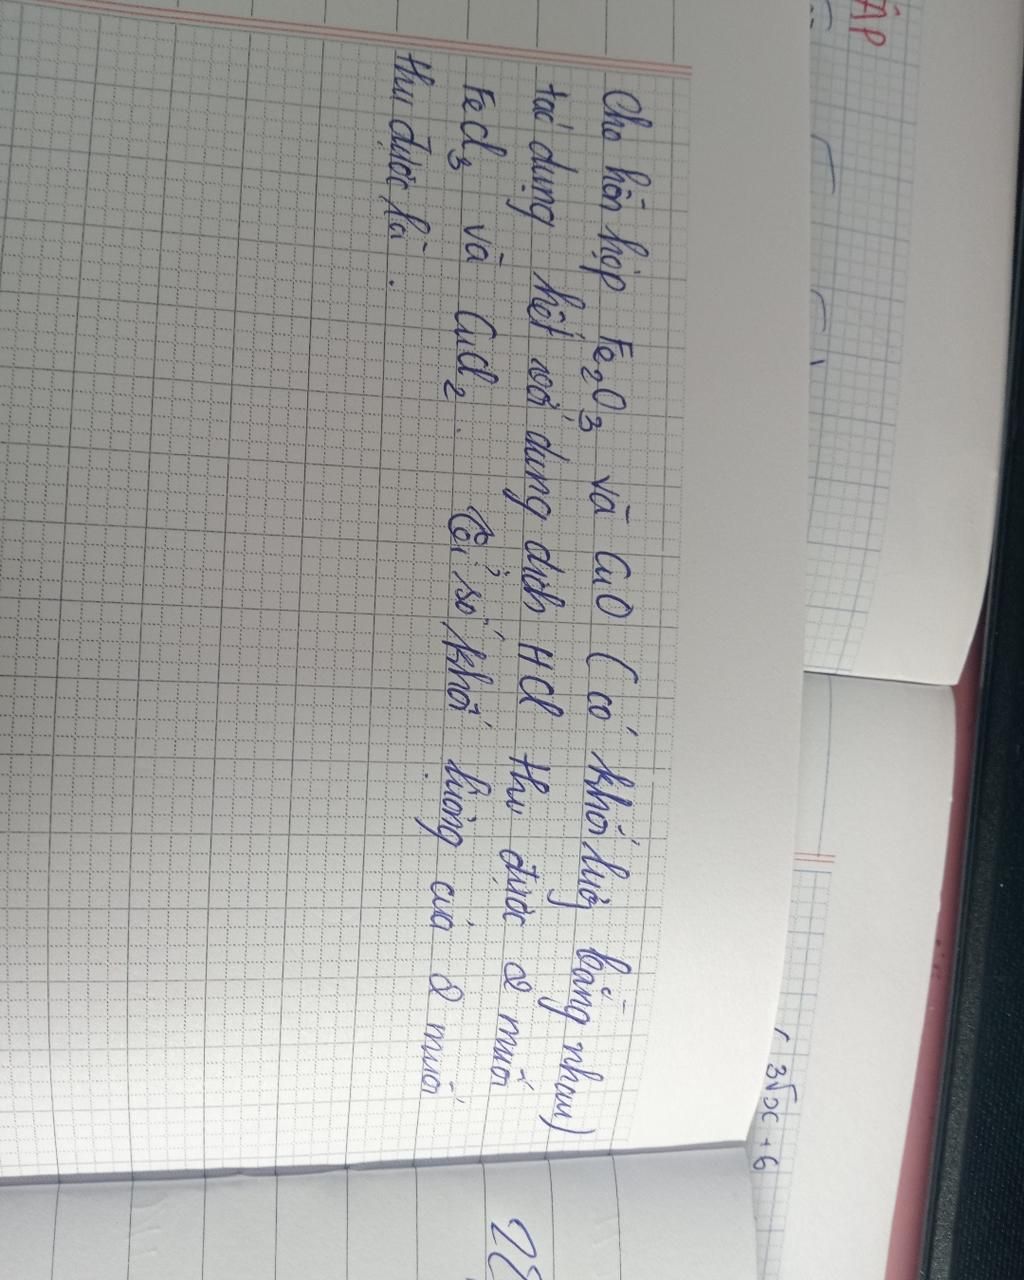 ÂP
3√x + 6
Cho hỗn hợp Fe2O3 và CuO (có khối lượg bằng nhau)
tác dụng hết với dung dịch HCl thu được 2 muối
FeCl3 và CuCl2. Tỉ số khối lượng của 2 muối
thu được là.